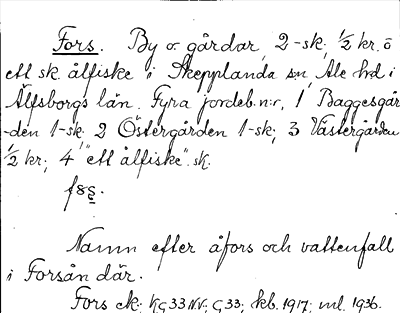 Fors. By o. gårdar, 2-sk; 1/2 kr. o
ett sk. ålfiske i Skepplanda sn, Ale hd i
Älfsborgs län. Fyra jordeb.n:r, 1 Baggesgår-
-den 1-sk; 2 Östergården 1-sk; 3 Västergården
1/2 kr; 4 "ett ålfiske" sk.
Namn efter åfors och vattenfall
i Forsån där.
Fors ek; G 33 kb. 1917; ml. 1936.